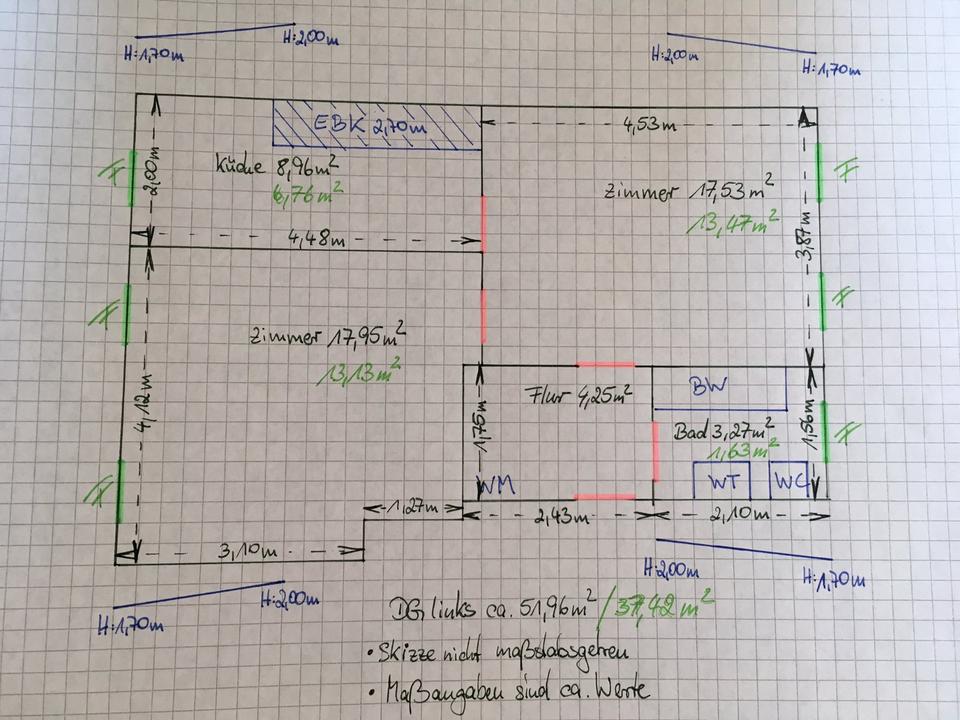 H:1,70m
H:2,00m
H:2,00m
H:1,70m
EBK 2,70m
4,53m
Küche 8,96m²
6,76m²
2,00m
F
Zimmer 17,53m²
13,47m²
F
3,87m
4,48m
F
F
Zimmer 17,95m²
13,13m²
4,12m
Flur 4,25m²
BW
1,75m
Bad 3,27m²
1,63m²
1,56m
F
WM
WT
WC
F
1,27m
2,43m
2,10m
3,10m
H:1,70m
H:2,00m
H:2,00m
H:1,70m
DG links ca. 51,96m² / 37,42m²
• Skizze nicht maßstabsgetreu
• Maßangaben sind ca. Werte